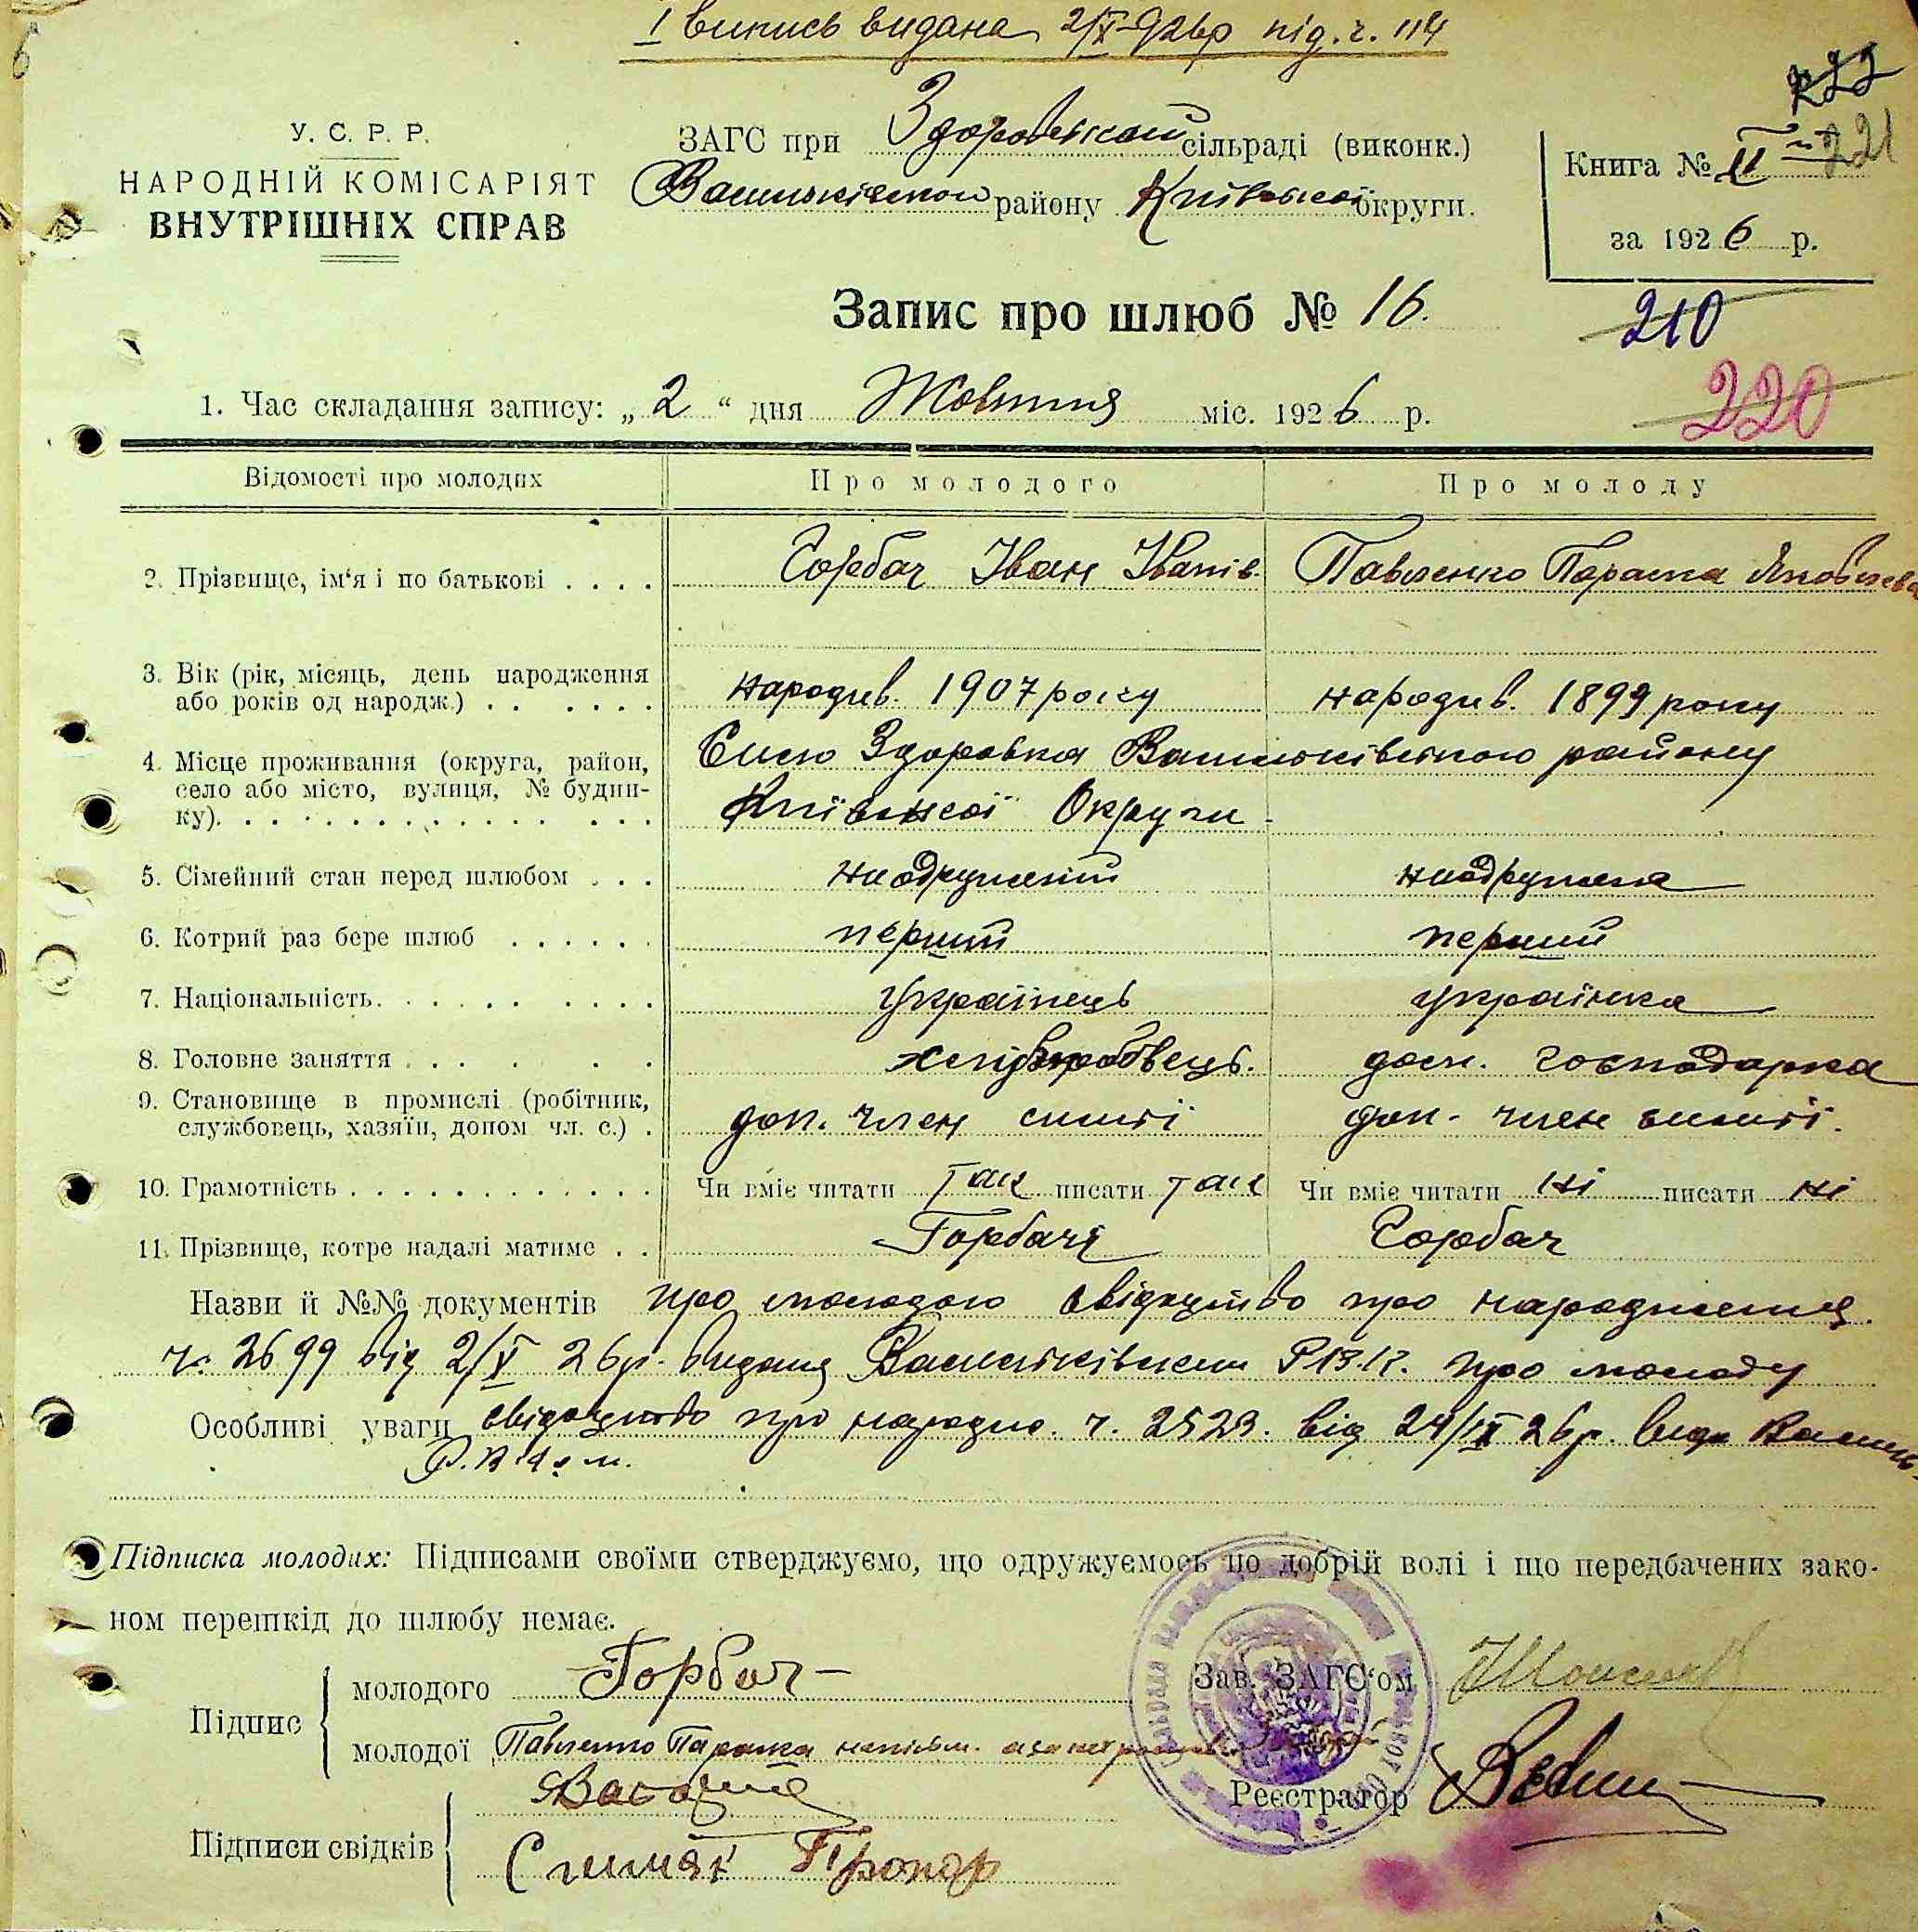 І випись видана 2/X-926р під. ч. 114
222
У. С. Р. Р.
НАРОДНІЙ КОМІСАРІЯТ
ВНУТРІШНІХ СПРАВ
ЗАГС при Здоровській сільраді (виконк.)
Васильківського району Київської округи.
Книга № II 221
за 1926 р.
Запис про шлюб № 16.
210
220
1. Час складання запису: „2“ дня Жовтня міс. 1926 р.
Відомості про молодих Про молодого Про молоду
2. Прізвище, ім‘я і по батькові . . . . Горбач Іван Іванів. Павленко Параска Яковлева
3. Вік (рік, місяць, день народження
або років од народж.) . . . . . . народив. 1907 року народив. 1899 року
4. Місце проживання (округа, район,
село або місто, вулиця, № будин-
ку). Село Здоровка Васильківського району
Київської Округи
5. Сімейний стан перед шлюбом . . . неодружений неодружена
6. Котрий раз бере шлюб . . . . . . перший перший
7. Національність. . . . . . . . . Українець українка
8. Головне заняття . . . . . . хліборобець. дом. господарка
9. Становище в промислі (робітник,
службовець, хазяїн, допом чл. с.) . доп. член сімьї доп. член сімьї.
10. Грамотність . . . . . . . . . . . . . Чи вміє читати так писати так Чи вміє читати ні писати ні
11. Прізвище, котре надалі матиме . . Горбач Горбач
Назви й №№ документів про молодого свідоцтво про народження
ч. 2699 від 2/X 26р. видане Васильківським Р.В.К. про молоду
Особливі уваги свідоцтво про народже. ч. 2523. від 24/IX 26р. вида Василь-
Підписка молодих: Підписами своїми стверджуємо, що одружуємось по добрій волі і що передбачених зако-
ном перешкід до шлюбу немає.
Підпис молодого Горбач
Зав. ЗАГС‘ом
молодої Павленко Параска
Реєстратор
Підписи свідків
Прокор